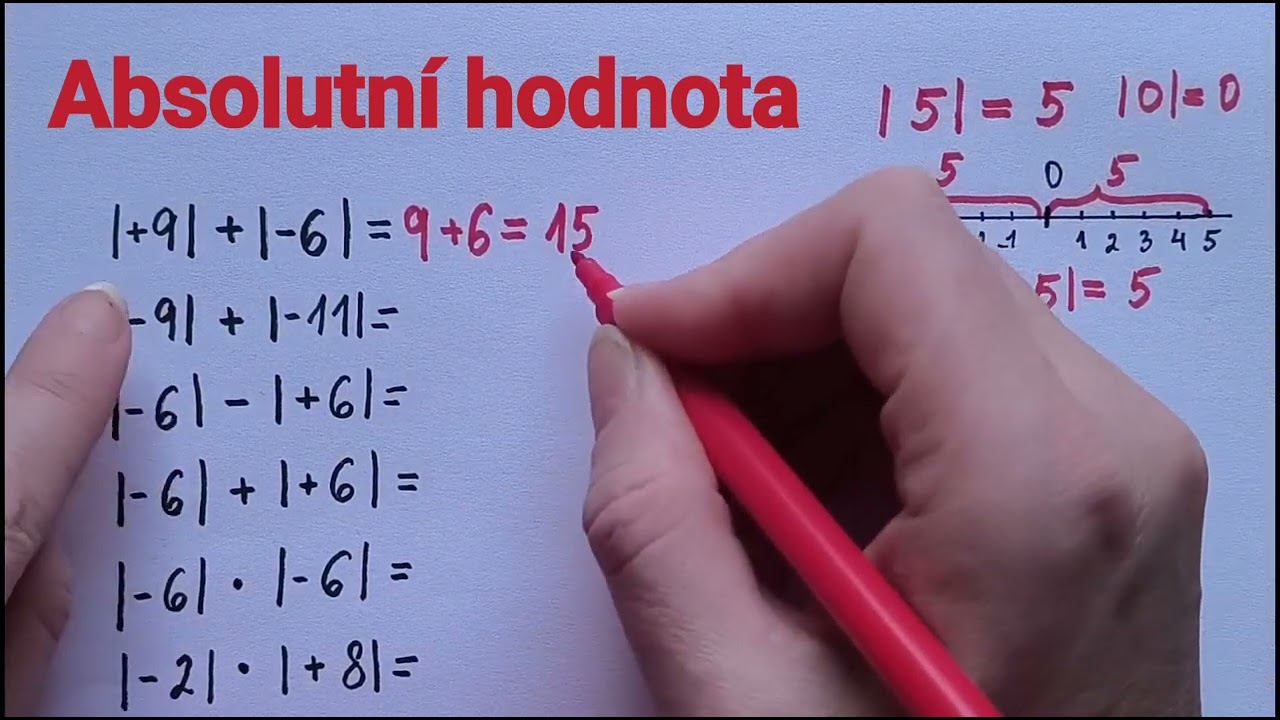 Absolutní hodnota
|5| = 5 |0| = 0
5 0 5
-1 1 2 3 4 5
5| = 5
|+9| + |-6| = 9 + 6 = 15
-9| + |-11| =
|-6| - |+6| =
|-6| + |+6| =
|-6| · |-6| =
|-2| · |+8| =